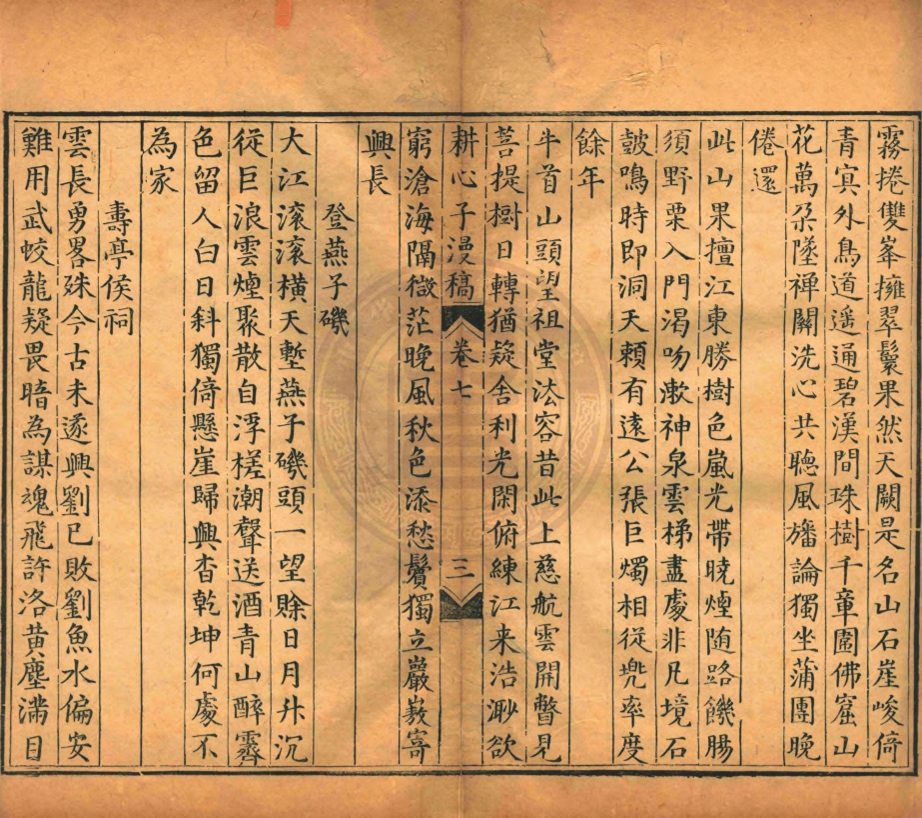 霧捲雙峯擁翠鬟果然天闕是名山石崖峻倚
青㝠外鳥道遥通碧漢間珠樹千章圍佛窟山
花萬朶墜禅關洗心共聽風旛論獨坐蒲團晚
倦還
此山果擅江東勝樹色嵐光帶曉煙随路饑腸
須野栗入門渴吻漱神泉雲梯盡處非凡境石
皷鳴時即洞天頼有遠公張巨燭相従兠率度
餘年
牛首山頭望祖堂法容昔此上慈航雲開瞥見
菩提樹日轉猶疑舍利光閑俯練江来浩渺欲
耕心子漫稿 卷七 三
窮滄海隔微茫晚風秋色添愁鬢獨立巖嶅寄
興長
登燕子磯
大江滚滚横天塹燕子磯頭一望賒日月升沉
従巨浪雲煙聚散自浮槎潮聲送酒青山醉霽
色留人白日斜獨倚懸崖歸興杳乾坤何處不
為家
壽亭侯祠
雲長勇畧殊今古未遂興劉已敗劉魚水偏安
難用武蛟龍疑畏暗為謀魂飛許洛黄塵滿目